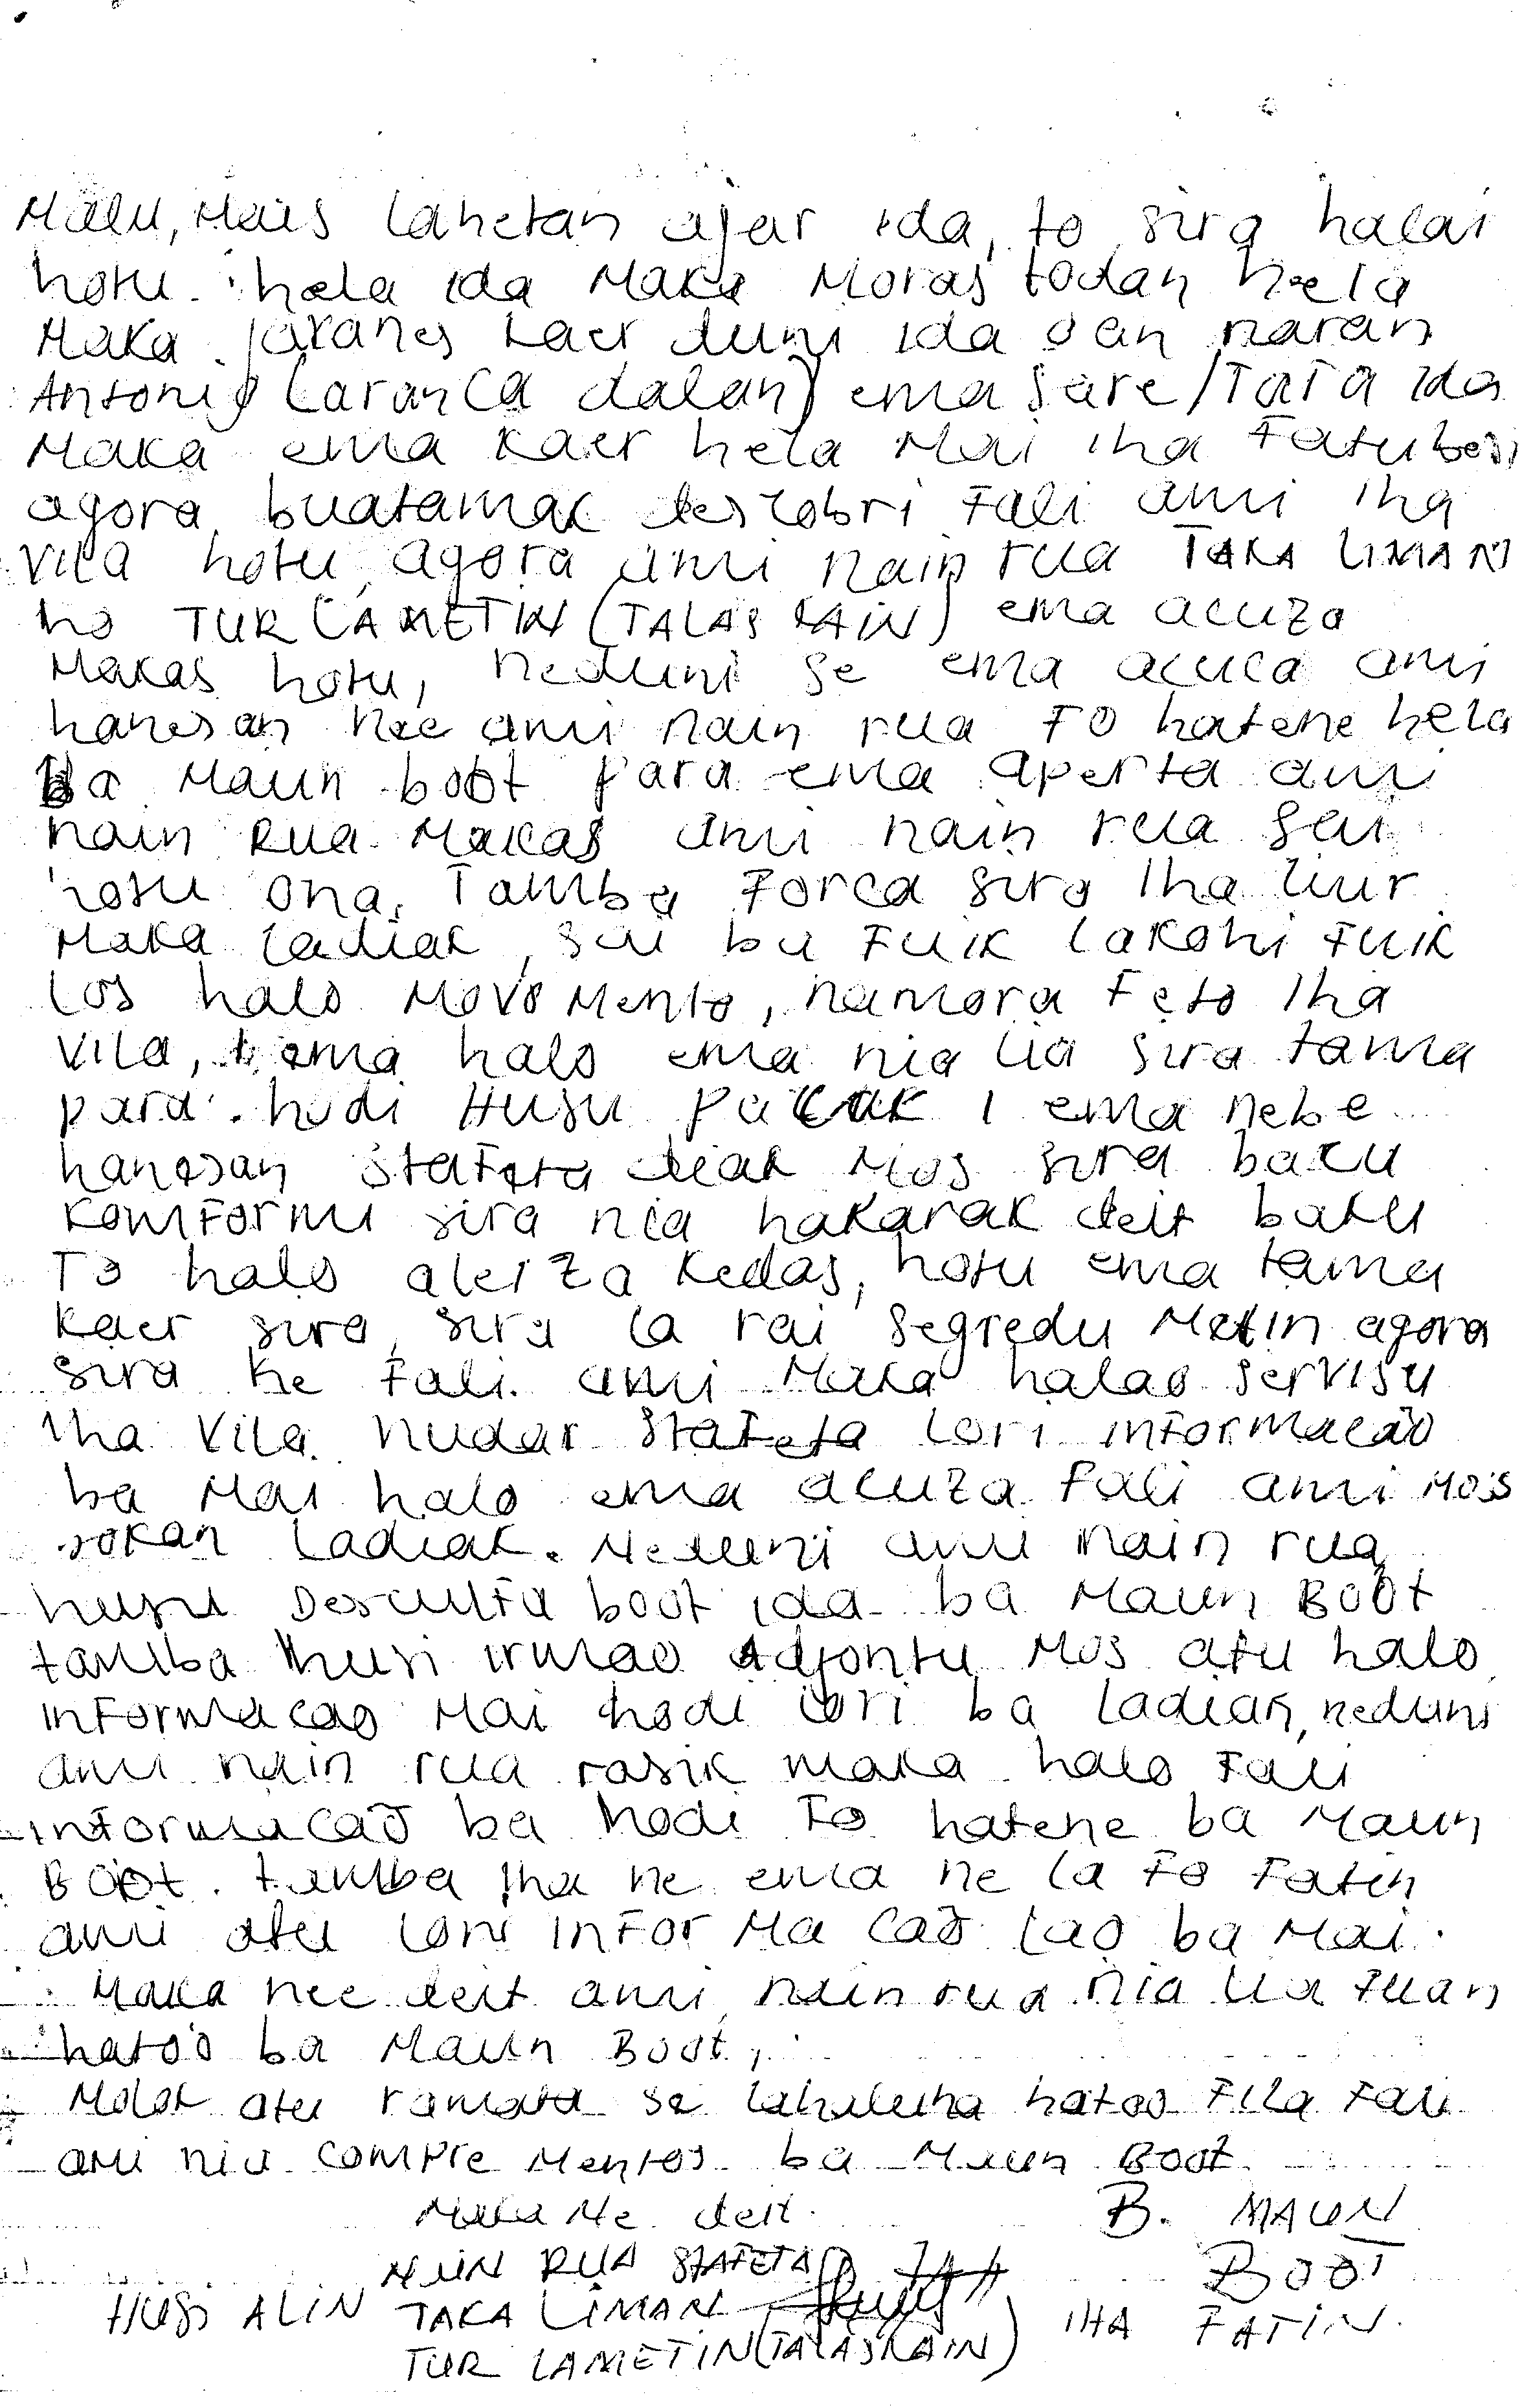 Malu, Mais lahetan ajar ida, to sira halai
hotu. hela ida Maka Moras todan hela
Maka. kaer duni ida dan naran
Antonio (Laranca dalan) ema Sare/TaTa ida
Maka ema kaer hela Mai iha Fatubesi
agora buatamak descobri Fali ami iha
Vila hotu, agora ami nain rua TAKA LIMAN
ho TUR LAMETIN (TALAS RAIN) ema acuza
Makas hotu, neduni se ema acuca ami
hanesan nee ami nain rua Fo hatene hela
Ba Maun boot para ema aperta ami
nain Rua Makas ami nain rua sai
hotu ona, Tamba Forca sira iha liur
Maka ladiak, sai ba Fuik lakohi Fuik
los halo MovoMento, namora Feto iha
Vila, ema halo ema nia lia sira tama
para hodi Husu I ema nebe
hanesan staFeta diak Mos sira baku
KomForme sira nia hakarak deit baku
To halo aleiza Kedas, hotu ema tama
Kaer sira, sira la rai segredu Metin agora
sira ke Fali ami Maka halao servisu
iha Vila nudar StaFeta lori inForMacão
ba Mai halo ema acuza Fali ami Mos
sokan ladiak. Neduni ami nain rua
husu Desculta boot ida ba Maun Boot
tamba husi irmao Adjontu Mos atu halo
inForMacao Mai hodi lori ba ladiak, neduni
ami nain rua rasik maka halo Fali
inForMacaõ ba hodi Fo hatene ba Maun
Boot. tamba iha ne ema ne la Fo Fatin
ami atu lori inForMaCaõ Lao ba Mai.
Maka nee deit ami nain rua nia lia Fuan
hato'o ba Maun Boot,
Molok atu ramata se lahaluha hatoo Fila Fali
ami nia compreMentos ba Maun Boot.
Maka Ne deit. B. MAUN
NAIN RUA STAFETA BOOT
HUSI ALIN TAKA LIMAN IHA FATIN.
TUR LAMETIN (TALAS RAIN)